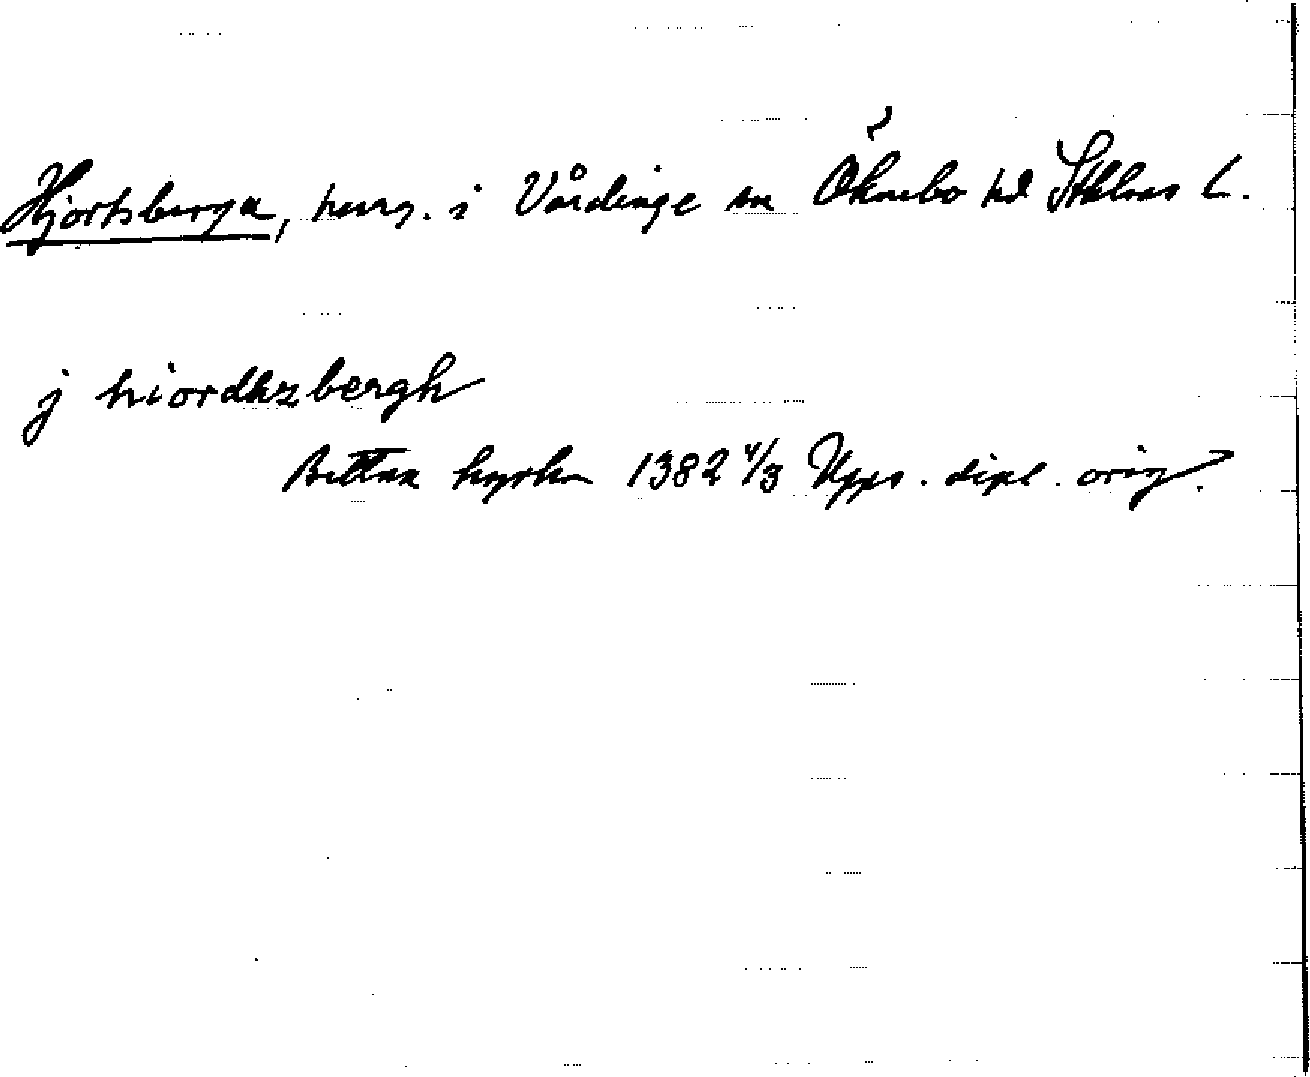 Hjortsberga, herrg. i Vårdinge sn Öknebo hd Sthlms l.
j hiordhzbergh
Bettna kyrka 1382 4/3 Upps. dipl. orig.